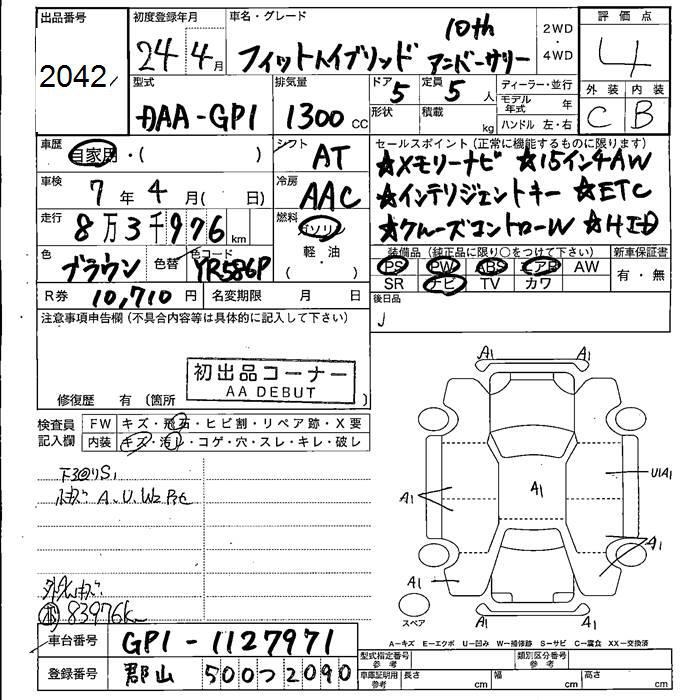 出品番号 初度登録年月 車名・グレード 評価点
2042 24年4月 フィットハイブリッド 10th アニバーサリー 2WD・4WD 4
型式 排気量 ドア 定員 ディーラー・並行 外装 内装
DAA-GP1 1300cc 5 5人 モデル年式 年 C B
形状 積載 kg ハンドル 左・右
車歴 シフト セールスポイント(正常に機能するものに限ります)
自家用・( ) AT ☆メモリーナビ ☆15インチAW
車検 冷房 ☆インテリジェントキー ☆ETC
7年4月( 日) AAC ☆クルーズコントロール ☆HID
走行 燃料
8万3千976km ガソリン
色 色替 色コード 軽油 装備品(純正品に限り○をつけて下さい) 新車保証書
ブラウン YR586P ( ) PS PW ABS エアB AW 有・無
R券 10,710円 名変期限 月 日 SR ナビ TV カワ
注意事項申告欄(不具合内容等は具体的に記入して下さい) 後日品
初出品コーナー
AA DEBUT
修復歴 有(箇所 )
検査員記入欄 FW キズ・飛石・ヒビ割・リペア跡・X要
内装 キズ・汚レ・コゲ・穴・スレ・キレ・破レ
A1 A1
A1 A1 U1A1
A1 A1
A1 A1
A、U、W2
83976km
スペア
A-キズ E-エクボ U-凹み W-補修跡 S-サビ C-腐食 XX-交換済
車台番号 GP1-1127971 型式指定番号 参考 類別区分番号 参考
登録番号 郡山 500つ2090 車庫証明用 参考 長さ cm 幅 cm 高さ cm